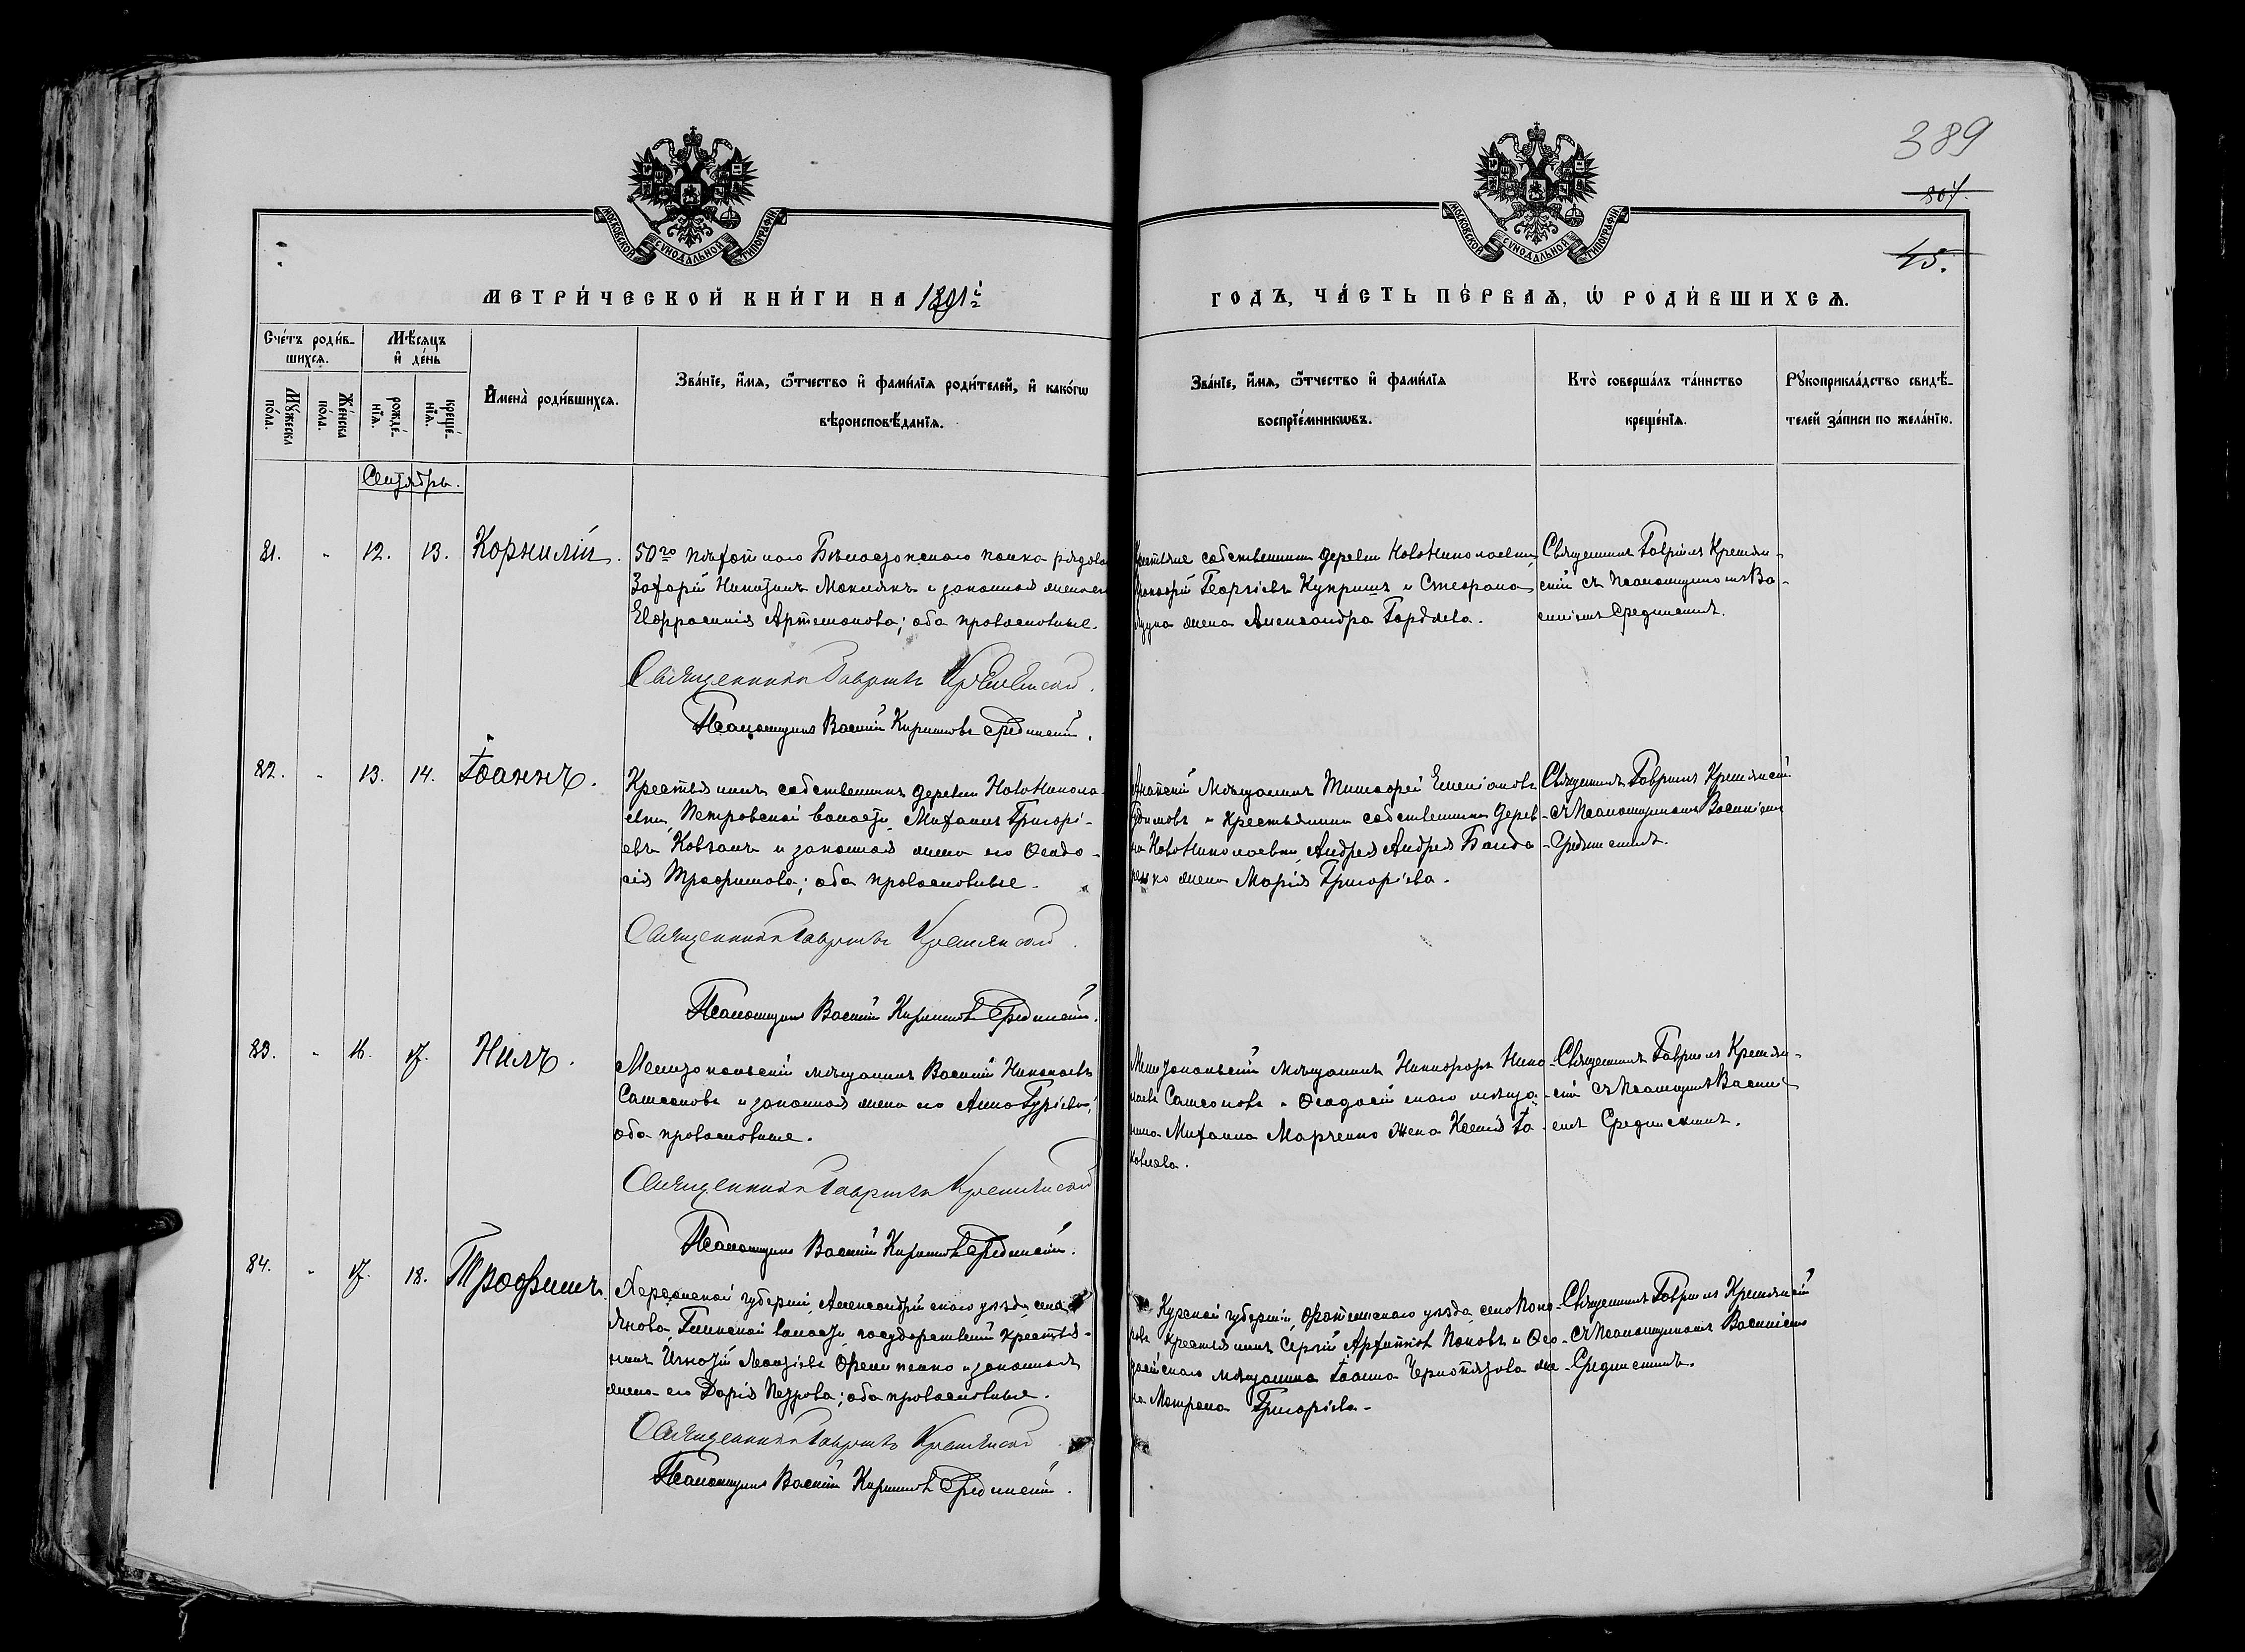 389
807.
45.
МОСКОВСКОЙ СѴНОДАЛЬНОЙ ТИПОГРАФІИ
МОСКОВСКОЙ СѴНОДАЛЬНОЙ ТИПОГРАФІИ
МЕТРИ́ЧЕСКОЙ КНИ́ГИ НА 1891й
ГОДЪ, ЧА́СТЬ ПЕ́РВАѦ, Ѡ҆ РОДИ́ВШИХСѦ.
Сче́тъ роди́в-
шихсѧ.
Мѣ́сѧцъ
и҆ де́нь
Мꙋ́жеска
по́ла.
Же́нска
по́ла.
рожде́-
нїѧ.
креще́-
нїѧ.
И҆мена̀ роди́вшихсѧ.
Зва́нїе, и҆́мѧ, ѻ҆́тчество и҆ фами́лїѧ роди́телей, и҆ како́гѡ
вѣроисповѣ́данїѧ.
Зва́нїе, и҆́мѧ, ѻ҆́тчество и҆ фами́лїѧ
воспрїе́мникѡвъ.
Кто̀ соверша́лъ та́инство
креще́нїѧ.
Рꙋкоприкла́дство свидѣ́-
телей за́писи по жела́нїю.
Сентябрь.
81. - 12. 13. Корнилій.
50го Пѣхотнаго Бѣлостокскаго полка рядовой
Захарій Никитинъ и законная жена его
Евфросинія Артемонова; оба православные.
Священникъ Гавріилъ Кремянскій.
Псаломщикъ Василій Кирилловъ Срединскій.
Крестьяне собственники деревни Новониколаевки,
Георгіевъ Купришъ и Стефана
жена Александра Гордѣева.
Священникъ Гавріилъ Кремян-
скій съ Псаломщикомъ Ва-
силіемъ Срединскимъ.
82. - 13. 14. Іоаннъ.
Крестьянинъ собственникъ деревни Новоникола-
евки, Петровской волости, Михаилъ Григорі-
евъ Ковганъ и законная жена его Ѳеодо-
сія Трофимова; оба православные.
Священникъ Гавріилъ Кремянскій.
Псаломщикъ Василій Кирилловъ Срединскій.
Анапскій Мѣщанинъ Тимофей Емеліановъ
и крестьянина собственника дерев-
ни Новониколаевки, Андрея Андрея Бонда
ренко жена Марія Григоріева.
Священникъ Гавріилъ Кремянскій
съ Псаломщикомъ Василіемъ
Срединскимъ.
83. - 16. 17. Нилъ.
Мелитопольскій мѣщанинъ Василій Николаевъ
Самсоновъ и законная жена его Анна Гуріева;
оба православные.
Священникъ Гавріилъ Кремянскій
Псаломщикъ Василій Кирилловъ Срединскій.
Мелитопольскій Мѣщанинъ Никифоръ Нико-
лаевъ Самсоновъ и Ѳеодосійскаго мѣща-
нина Михаила Марченко жена Ксенія Іа-
ковлева.
Священникъ Гавріилъ Кремян-
скій съ Псаломщикомъ Василі-
емъ Срединскимъ.
84. - 17. 18. Трофимъ.
Херсонской губерніи, Александрійскаго уѣзда села
Глинской волости, государственный крестья-
нинъ Игнатій Леонтіевъ и законная
жена его Дарія Петрова; оба православные.
Священникъ Гавріилъ Кремянскій
Псаломщикъ Василій Кирилловъ Срединскій.
Курской губерніи, Фатежскаго уѣзда, села
крестьянинъ Сергій Поповъ и Ѳео-
досійскаго мѣщанина Іоанна Чернотязова же-
на Матрона Григоріева.
Священникъ Гавріилъ Кремянскій
съ Псаломщикомъ Василіемъ
Срединскимъ.